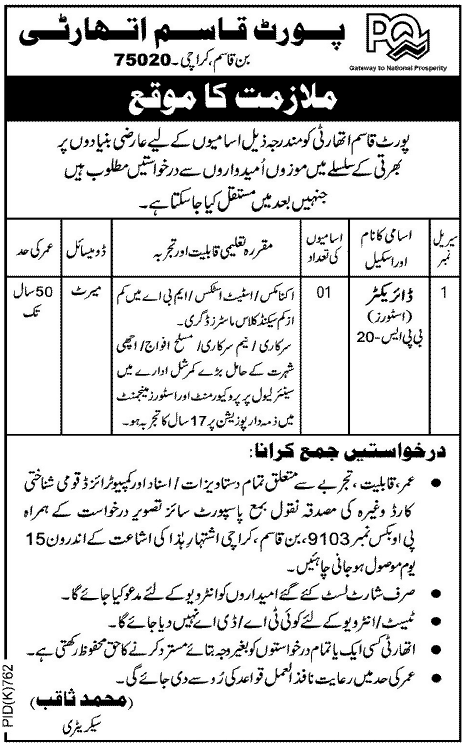 پورٹ قاسم اتھارٹی
بن قاسم، کراچی۔75020
PQA
Gateway to National Prosperity
ملازمت کا موقع
پورٹ قاسم اتھارٹی کو مندرجہ ذیل اسامیوں کے لیے عارضی بنیادوں پر
بھرتی کے سلسلے میں موزوں اُمیدواروں سے درخواستیں مطلوب ہیں
جنہیں بعد میں مستقل کیا جا سکتا ہے۔
سیریل نمبر
اسامی کا نام اور اسکیل
اسامیوں کی تعداد
مقررہ تعلیمی قابلیت اور تجربہ
ڈومیسائل
عمر کی حد
1
ڈائریکٹر
(اسٹورز)
بی پی ایس-20
01
اکنامکس/اسٹیٹ اسٹکس/ایم بی اے میں کم
از کم سیکنڈ کلاس ماسٹرز ڈگری۔
سرکاری/نیم سرکاری/مسلح افواج/اچھی
شہرت کے حامل بڑے کمرشل ادارے میں
سینئر لیول پر پروکیورمنٹ اور اسٹورز مینجمنٹ
میں ذمہ دار پوزیشن پر 17 سال کا تجربہ ہو۔
میرٹ
50 سال
تک
درخواستیں جمع کرانا:
● عمر، قابلیت، تجربے سے متعلق تمام دستاویزات/اسناد اور کمپیوٹرائزڈ قومی شناختی
کارڈ وغیرہ کی مصدقہ نقول بمع پاسپورٹ سائز تصویر درخواست کے ہمراہ
پی او بکس نمبر 9103، بن قاسم، کراچی اشتہار ہٰذا کی اشاعت کے اندرون 15
یوم موصول ہو جانی چاہئیں۔
● صرف شارٹ لسٹ کئے گئے امیدواروں کو انٹرویو کے لئے مدعو کیا جائے گا۔
● ٹیسٹ/انٹرویو کے لئے کوئی ٹی اے/ڈی اے نہیں دیا جائے گا۔
● اتھارٹی کسی ایک یا تمام درخواستوں کو بغیر وجہ بتائے مسترد کرنے کا حق محفوظ رکھتی ہے۔
● عمر کی حد میں رعایت نافذ العمل قواعد کی رُو سے دی جائے گی۔
(محمد ثاقب)
سیکریٹری
PID(K)762